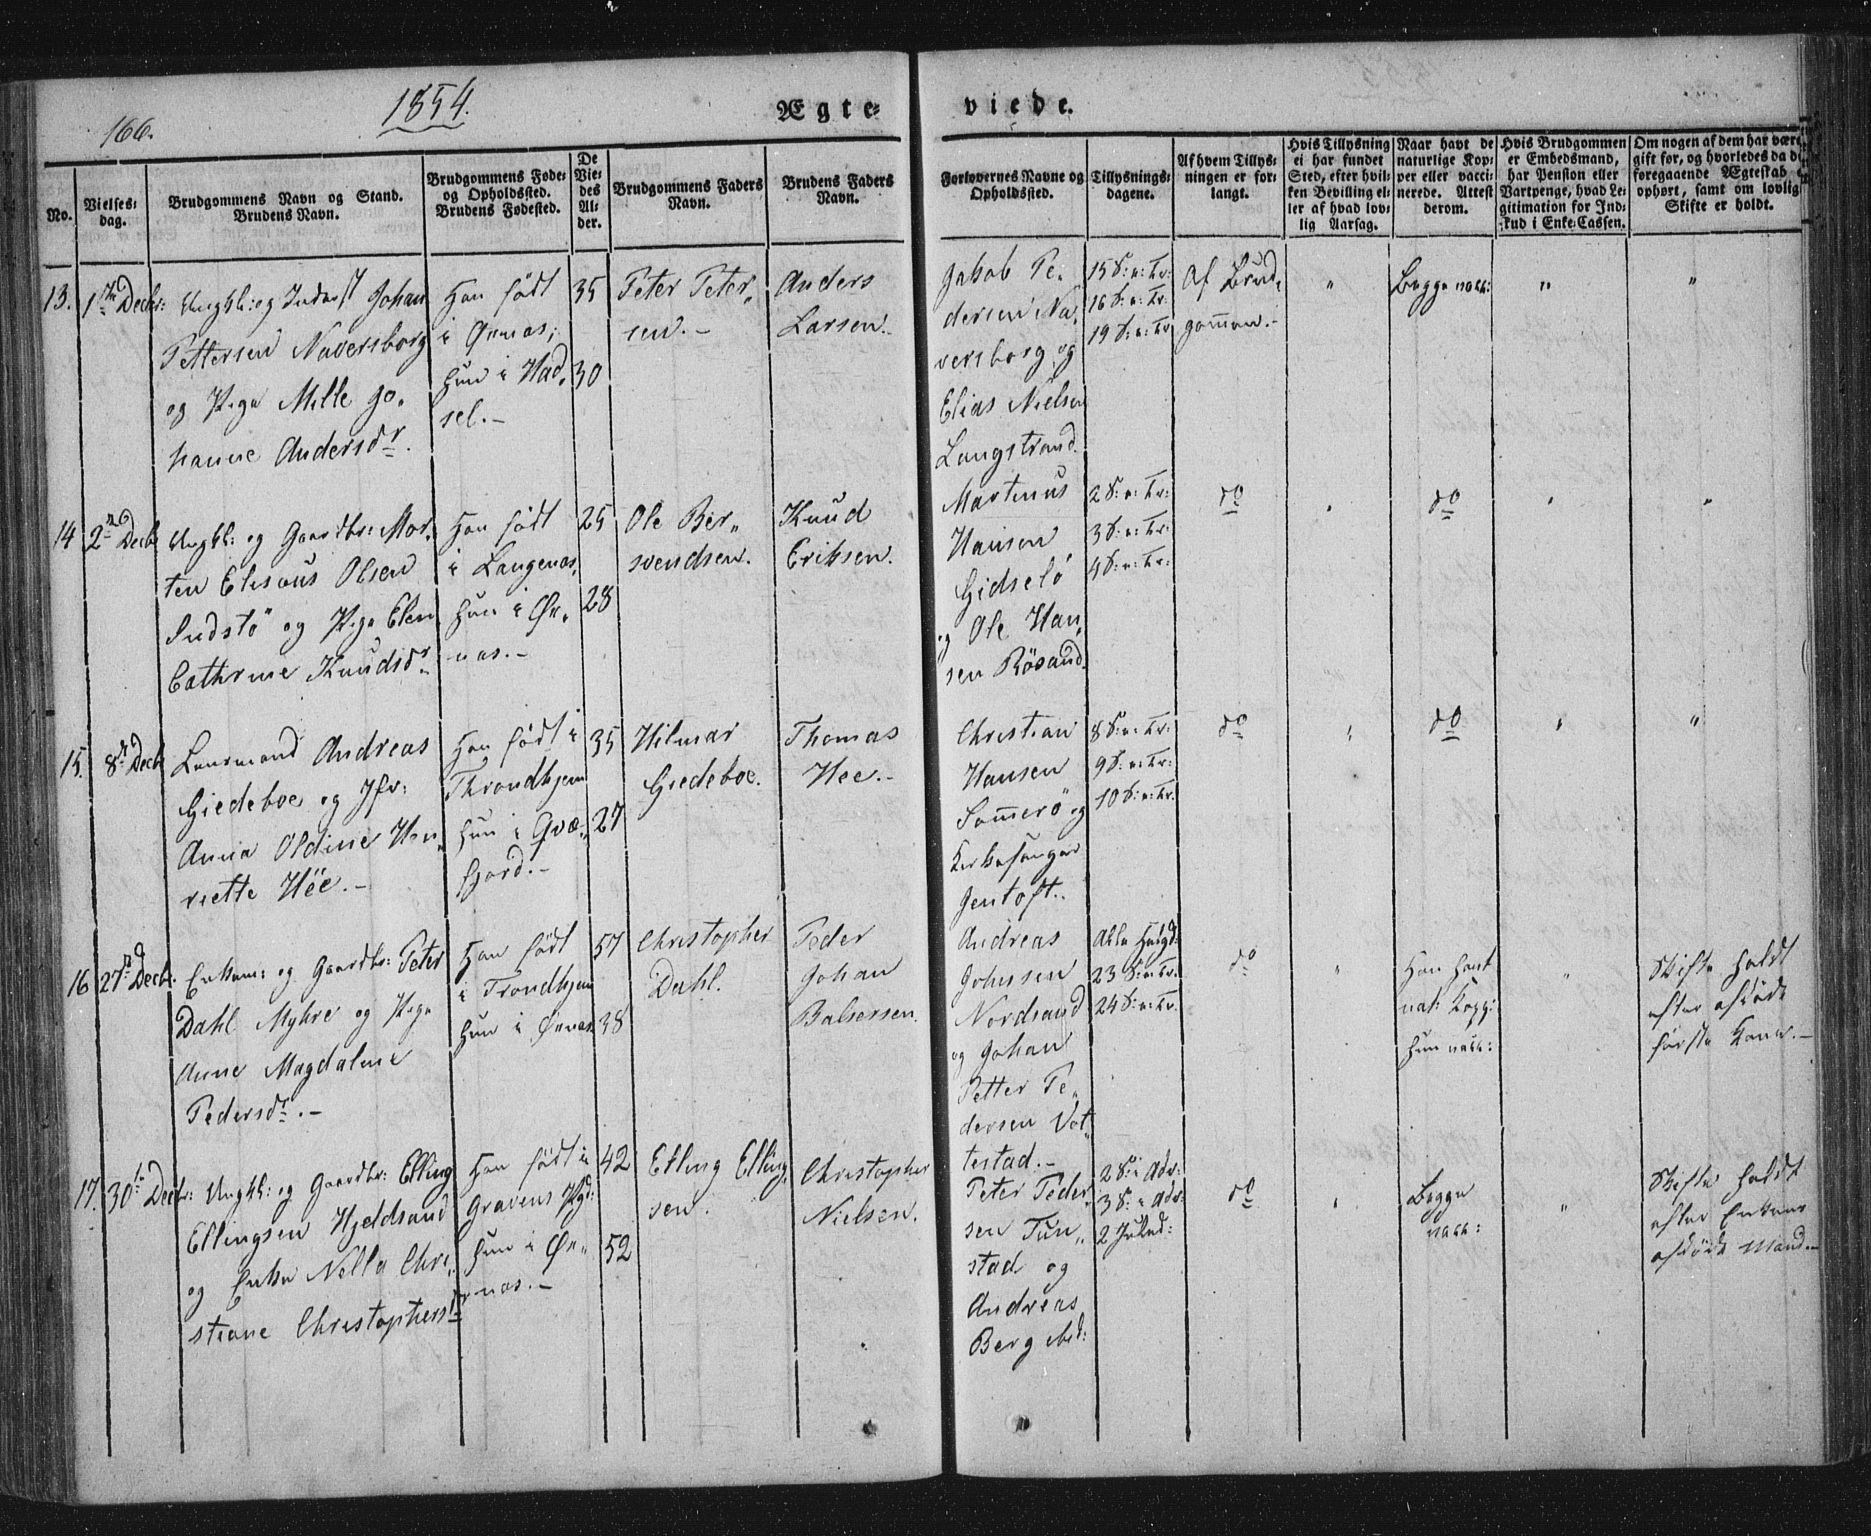 166.
1854.
Ægte-
viede.
No.
Vielses-
dag.
Brudgommens Navn og Stand.
Brudens Navn.
Brudgommens Føde-
og Opholdssted.
Brudens Fødested.
De
Vie-
des
Al-
der.
Brudgommens Faders
Navn.
Brudens Faders
Navn.
Forlovernes Navne og
Opholdssted.
Tillysnings-
dagene.
Af hvem Tillys-
ningen er for-
langt.
Hvis Tillysning
ei har fundet
Sted, efter hvil-
ken Bevilling el-
ler af hvad lov-
lig Aarsag.
Naar havt de
naturlige Kop-
per eller vacci-
nerede. Attest
derom.
Hvis Brudgommen
er Embedsmand,
har Pension eller
Vartpenge, hvad Le-
gitimation for Ind-
skud i Enke-Cassen.
Om nogen af dem har være
gift før, og hvorledes da d
foregaaende Ægteskab
ophørt, samt om lovlig
Skifte er holdt.
13.
1ste Decbr:
Ungkl: og Inderst Johan
Pettersen Naversborg
og Pige Mille Jo-
hanne Andersdr.
Han født
i Øxnæs,
hun i Had-
sel.-
35
30
Peter Peter-
sen.-
Anders
Larsen.-
Jakob Pe-
dersen Na-
versborg og
Elias Nielsen
Langstrand.
15 S: e: Tr:
16 S: e: Tr:
19 S: e: Tr:
Af Brud-
gommen.-
"
Begge vacc:
"
"
14
2den Decbr
Ungkl: og Gaardbr: Mor-
ten Elisæus Olsen
Indstø og Pige Elen
Cathrine Knudsdr
Han født
i Langenæs,
hun i Øx-
næs.-
25
28
Ole Ber-
svendsen.
Knud
Eriksen.
Martinus
Hansen
Gidselø
og Ole Han-
sen Rösand.
2 S: e: Tr:
3 S: e: Tr:
4 S: e: Tr:
do
"
do
"
"
15.
8de Decbr
Lensmand Andreas
Giedeboe og Jfr:
Anna Oldine Hen-
riette Hee.-
Han født i
Throndhjem
hun i Qvæ-
fjord.-
35
27
Hilmar
Giedeboe.
Thomas
Hee.-
Christian
Hansen
Sommerø og
Kirkesanger
Jentoft.
8 S: e: Tr:
9 S: e: Tr:
10 S: e: Tr.
do
"
do
"
"
16
27de Decbr.
Enkem: og Gaardbr: Peter
Dahl Myhre og Pige
Anne Magdalene
Pedersdr.-
Han født
i Trondhjem
hun i Øxnæs
57
38
Christopher
Dahl.
Peder
Johan
Balsersen.
Andreas
Johnsen
Nordsand
og Johan
Petter Pe-
dersen Vot-
testad.-
Alle Helgd:
23 S: e: Tr.
24 S: e: Tr.
do
"
Han havt
nat: Kopp:
hun vacc:
"
Skifte holdt
efter afdøde
første Kone.-
17.
30te Decbr:
Ungkl: og Gaardbr: Elling
Ellingsen Hjeldsand
og Enke Nella Chri-
stiane Christophersdr
Han født i
Gravens Pgd:
hun i Øx-
næs.-
42
52
Elling Elling-
sen.
Christopher
Nielsen.
Peter Peder-
sen Tun-
stad og
Andreas
Berg ibid:
2 S: i Adv:
3 S: i Adv:
2 Juled:
do
"
Begge
vacc:
"
Skifte holdt
efter Enkens
afdøde Mand.-